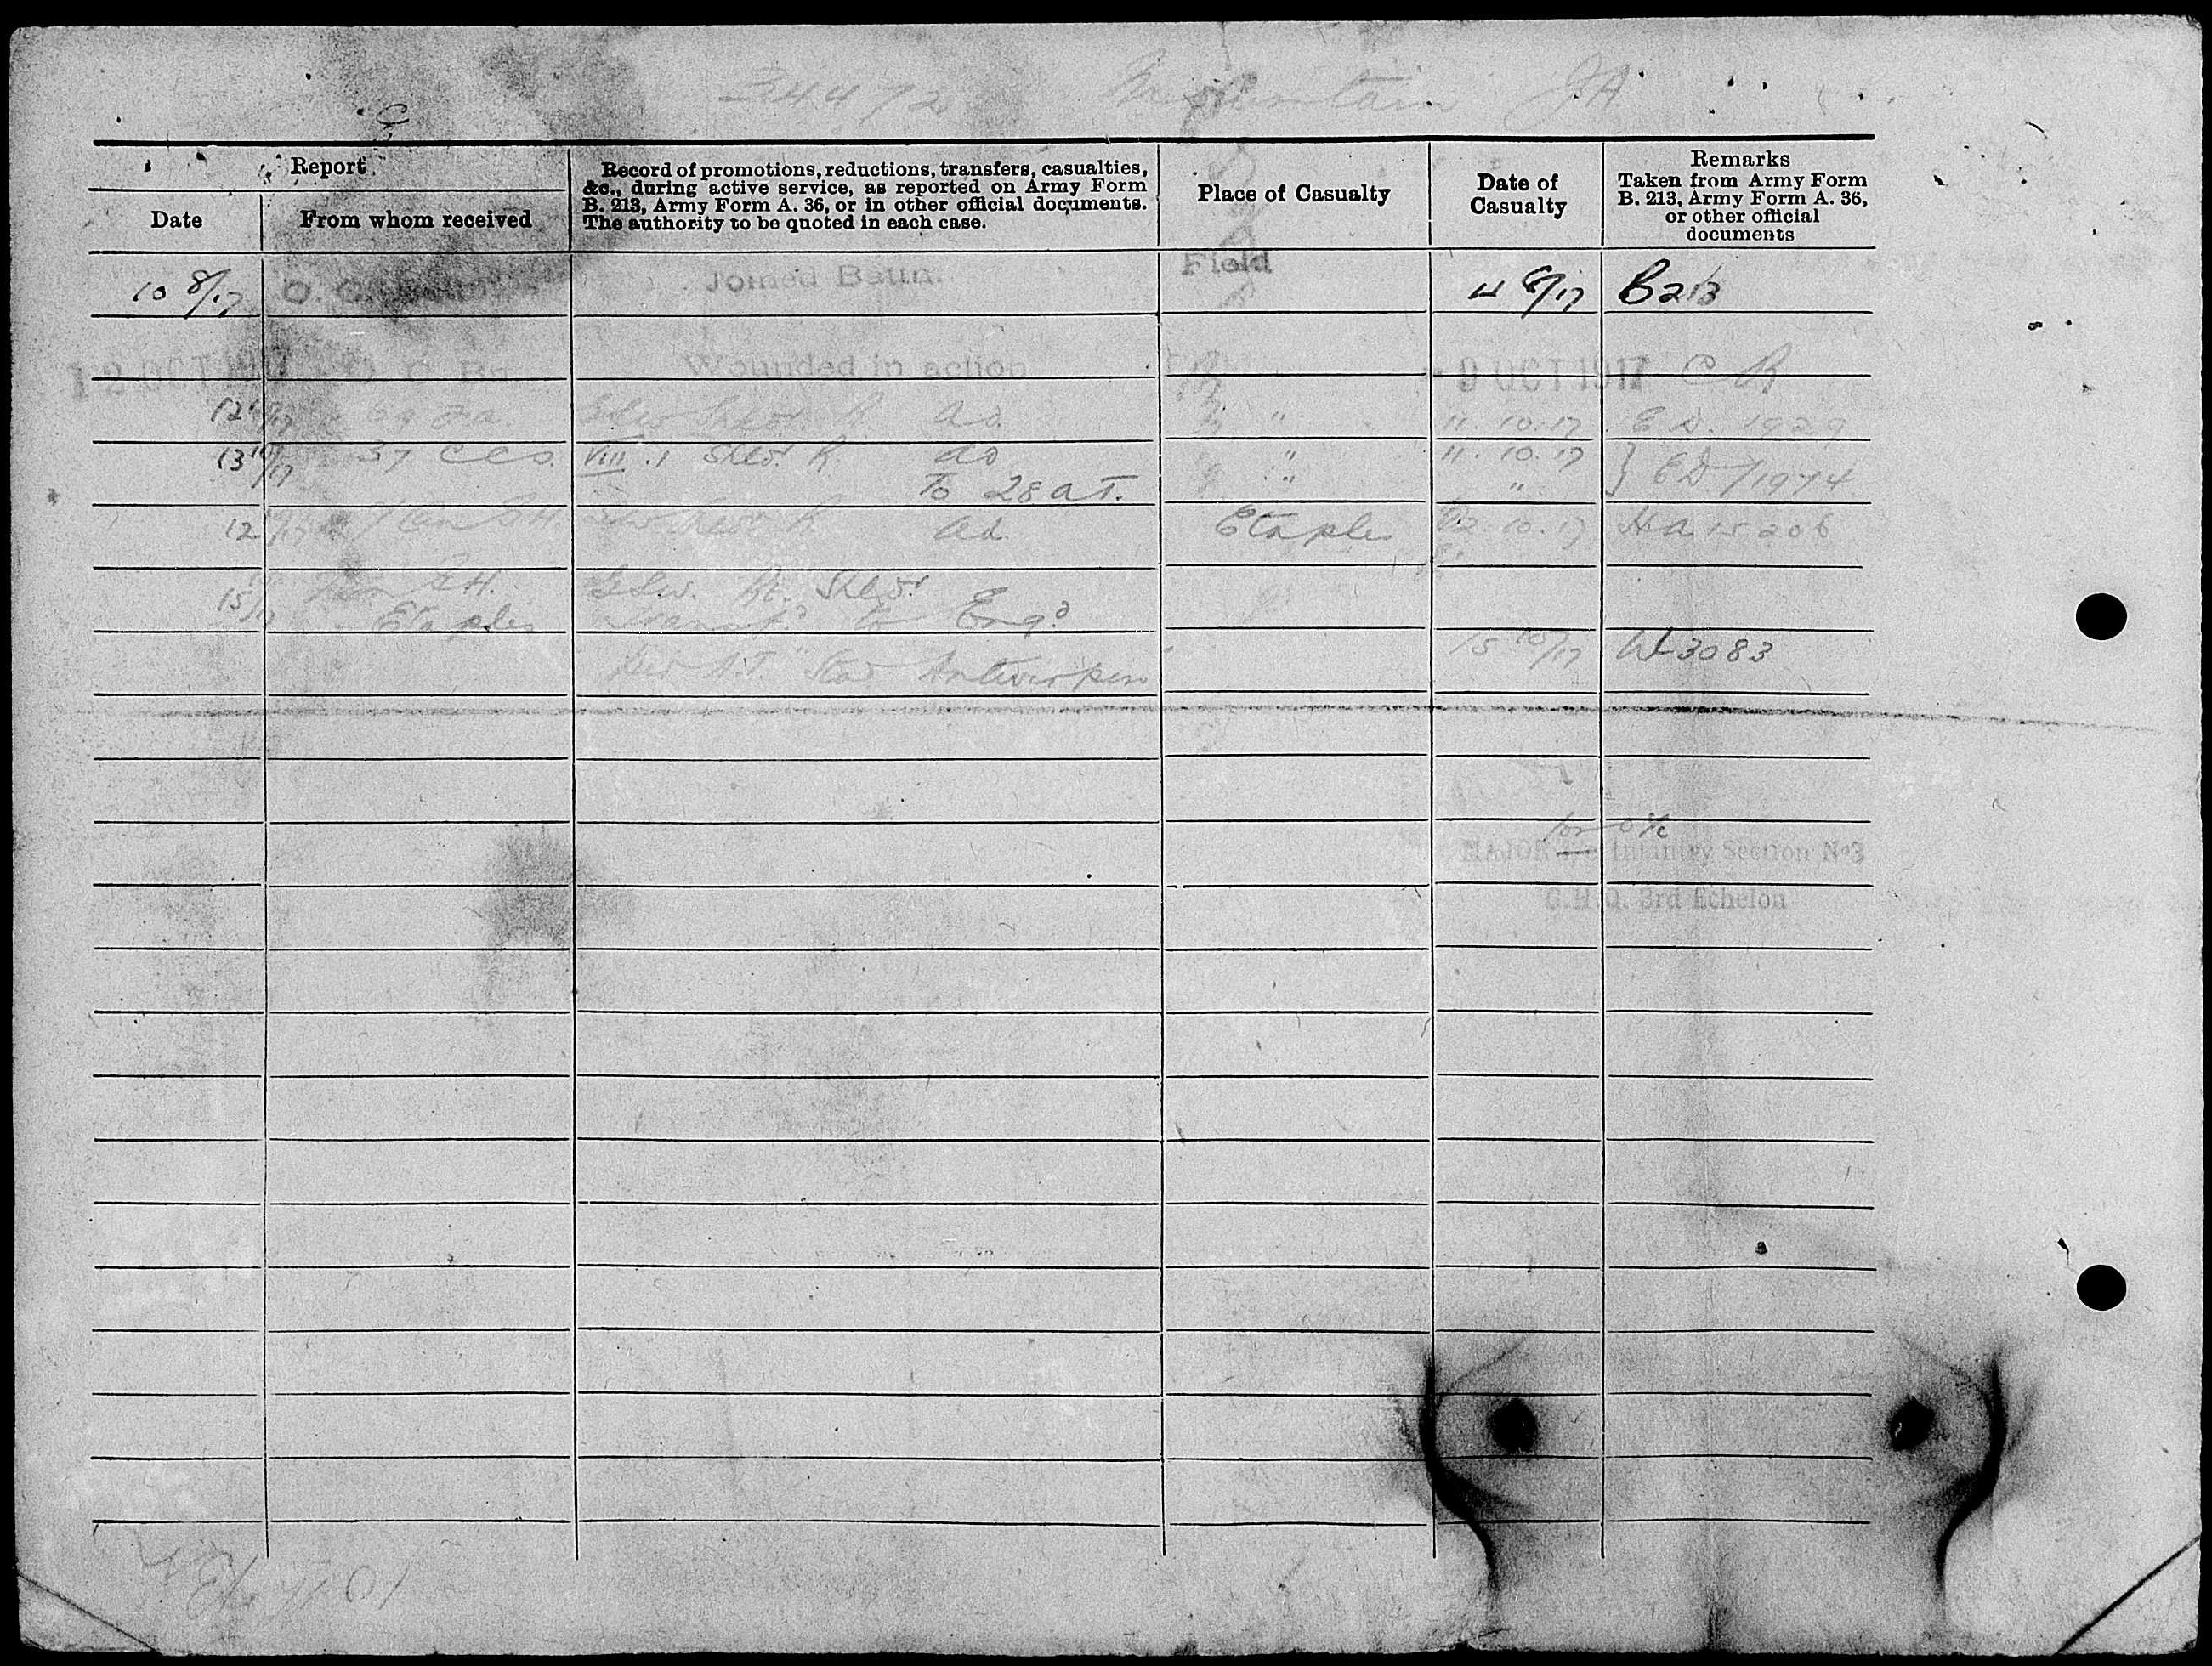 34472 Mountain JA
Report
Record of promotions, reductions, transfers, casualties,
&c., during active service, as reported on Army Form
B. 213, Army Form A. 36, or in other official documents.
The authority to be quoted in each case.
Place of Casualty
Date of
Casualty
Remarks
Taken from Army Form
B. 213, Army Form A. 36,
or other official
documents
Date
From whom received
10 8/17 O. C. Joined Battn. Field 8/17 B213
12 OCT 1917 O C Bn. Wounded in action 9 OCT 1917 C R
12 /17 69 Fa. GSW Shldr. R ad. " 11.10.17 E D. 1929
13 /17 37 CCS. VIII.1 Shldr. R ad " 11.10.17 } ED /1974
To 28 A T. " "
12 /17 Can G.H. Shldr R ad. Etaples 12.10.17 Ha 15206
15 /17 Can G.H. GSW. Rt. Shldr.
Etaples Transf.d to Eng.d
per A.T. "Stad Antwerpen" 15 10/17 W 3083
for o i/c
MAJOR Infantry Section No 3
G.H.Q. 3rd Echelon